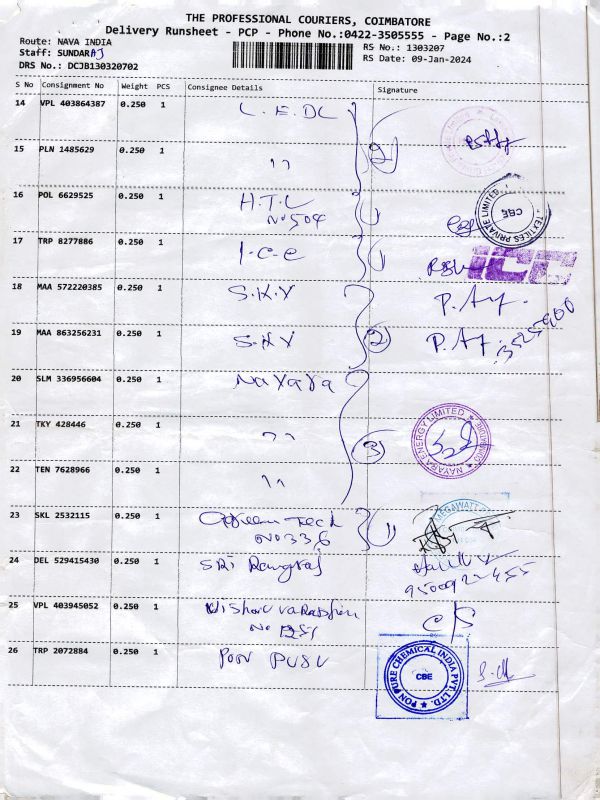 THE PROFESSIONAL COURIERS, COIMBATORE
Delivery Runsheet - PCP - Phone No.:0422-3505555 - Page No.:2
Route: NAVA INDIA
RS No.: 1303207
Staff: SUNDARAJ
RS Date: 09-Jan-2024
DRS No.: DCJB130320702
S No Consignment No Weight PCS Consignee Details Signature
14 VPL 403864387 0.250 1 L.E.DC
15 PLN 1485629 0.250 1 ,, 2
16 POL 6629525 0.250 1 H.T.L 1
No 504
TEXTICES PRIVATE LIMITED CBE
17 TRP 8277886 0.250 1 I-C-E 1
18 MAA 572220385 0.250 1 S.K.Y P.
19 MAA 863256231 0.250 1 S.KY 2 P.
20 SLM 336956604 0.250 1 Nayara
21 TKY 428446 0.250 1 ,, 3
NAYARA ENERGY LIMITED
22 TEN 7628966 0.250 1 ,,
23 SKL 2532115 0.250 1 Tech 1
No 336
MEGAWATT
24 DEL 529415430 0.250 1 SRi Rangraj
25 VPL 403945052 0.250 1 Kishore
No
26 TRP 2072884 0.250 1 PON PUSU
PON PURE CHEMICAL INDIA PVT. LTD. CBE